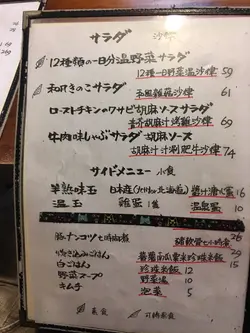 サラダ
12種類の一日分温野菜サラダ
12種一日野菜温沙律 59
和風きのこサラダ
和風雜菇沙律 61
ローストチキンのワサビ胡麻ソースサラダ
芥胡麻汁烤雞沙律 69
牛肉味しゃぶサラダ 胡麻ソース
胡麻汁涮肥牛沙律 74
サイドメニュー 小食
半熟味玉 日本産 醬汁溏心蛋 16
温玉 鶏蛋1隻 温泉蛋 10
豚ナンコツ七時間煮 豬軟骨七小時煮 26
珍珠米飯 29
白ごはん 珍珠米飯 12
野菜スープ 野菜湯 10
キムチ 泡菜 5
素食 可轉素食